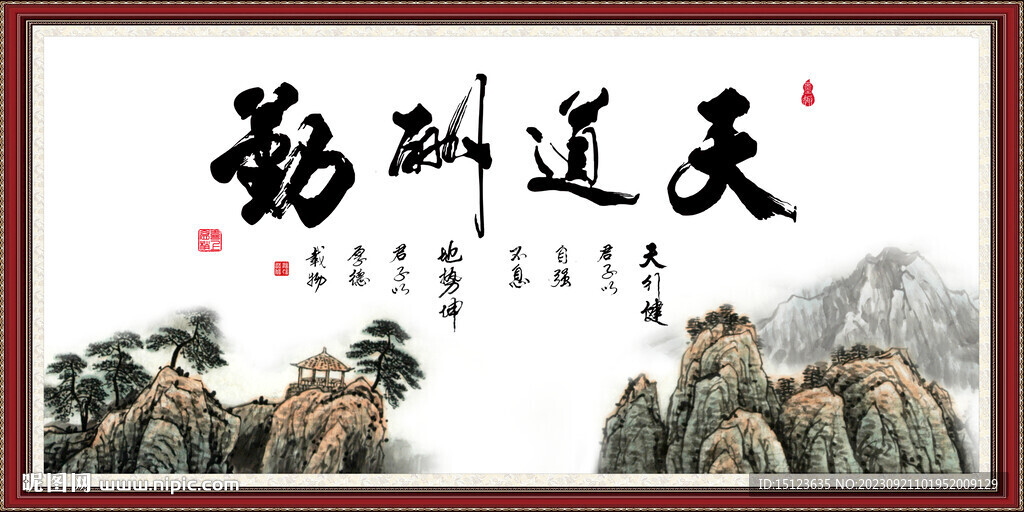 天道酬勤
天行健
君子以
自强
不息
地势坤
君子以
厚德
载物
昵图网 www.nipic.com
ID:15123635 NO:20230921101952009129